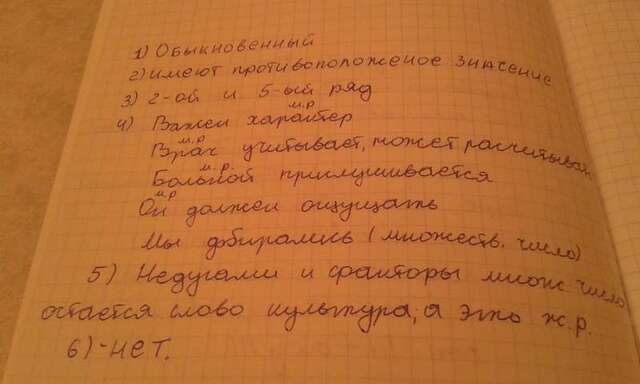 1) Обыкновенный
2) имеют противоположеное значение
3) 2-ой и 5-ый ряд
4) Важен характер м.р
Врач учитывает, может расчитыват м.р
Больной прислушивается м.р.
Он должен ощущать м.р
Мы добирались (множеств. число)
5) Недугами и факторы множ. число
остается слово культура, а это ж.р.
6) - нет.